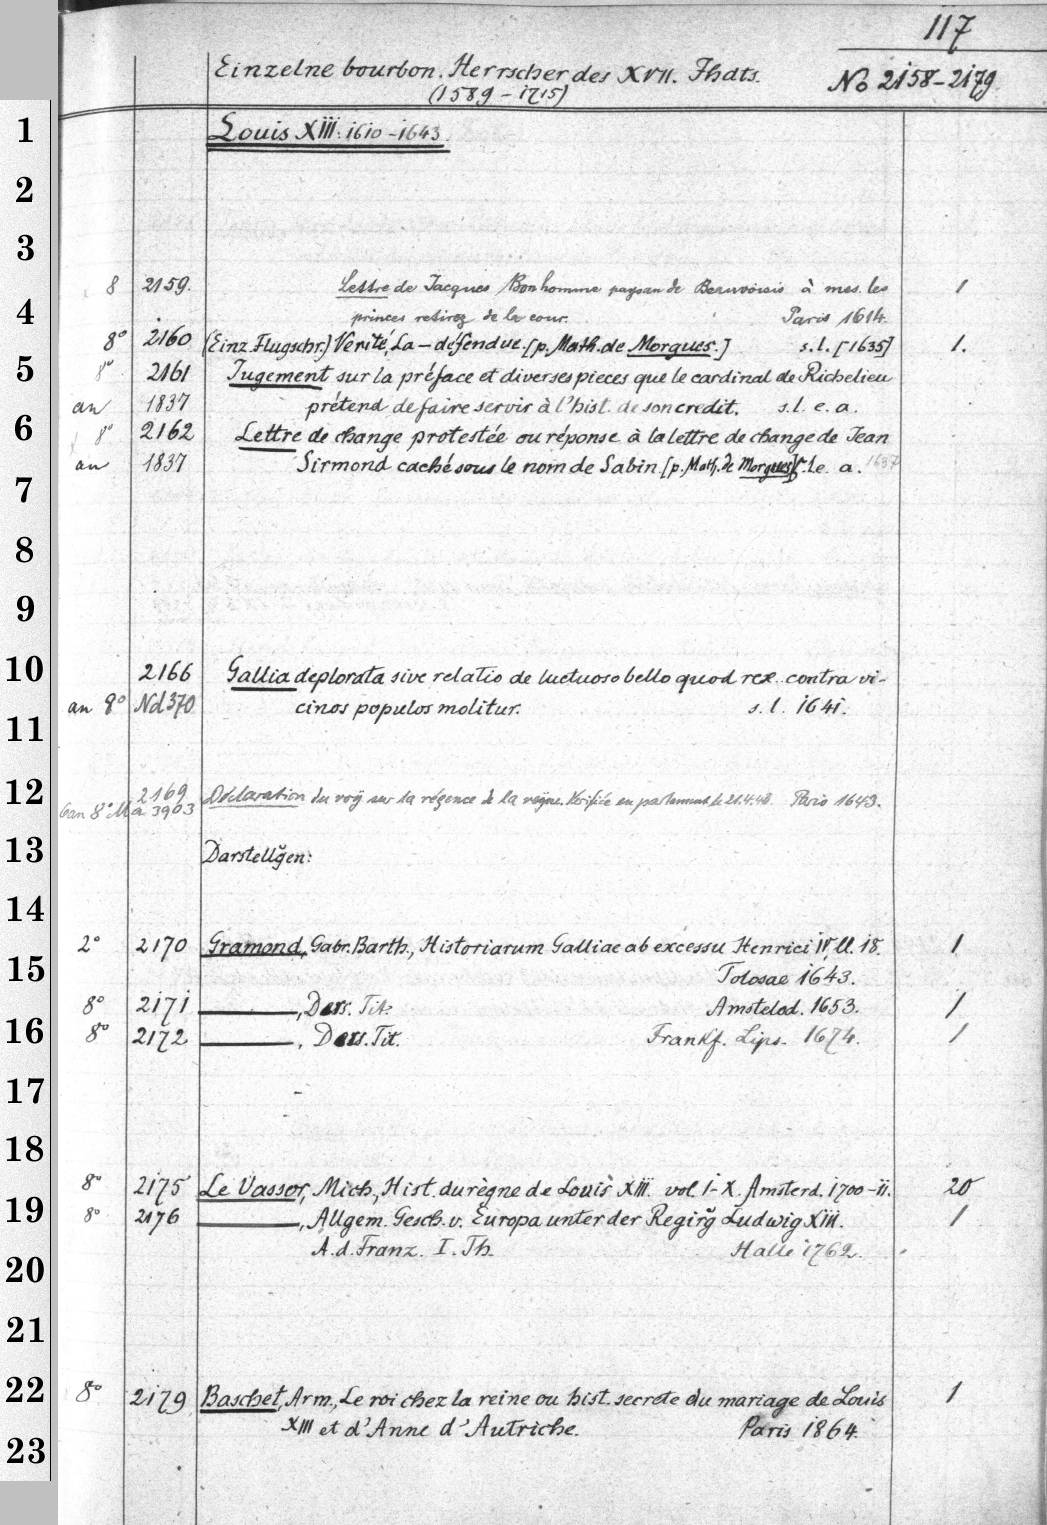 117
Einzelne bourbon. Herrscher des XVII. Jhdts.
(1589 - 1715)
No 2158-2179
1
Louis XIII: 1610-1643.
2
3
8 2159. Lettre de Jacques Bonhomme paysan de Beauvoisis à mes. les 1
4
princes retirez de la cour. Paris 1614.
8° 2160 (Einz. Flugschr.) Vérité, La - défendue. [p. Math. de Morgues.] s.l. [1635] 1.
5
8° 2161 Jugement sur la préface et diverses pieces que le cardinal de Richelieu
an 1837 prétend de faire servir à l'hist. de son credit. s.l. e. a.
6
8° 2162 Lettre de change protestée ou réponse à la lettre de change de Jean
an 1837 Sirmond caché sous le nom de Sabin. [p. Math. de Morgues] s.l. e. a. 1637
7
8
9
10
2166 Gallia deplorata sive relatio de luctuoso bello quod rex contra vi-
an 8° Nd 370 cinos populos molitur. s. l. 1641.
11
12
2169 Déclaration du roÿ sur la régence de la reÿne. Verifiée en parlement le 21.4.43. Paris 1643.
6an 8° Ma 3903
13
Darstellg̃en:
14
2° 2170 Gramond, Gabr. Barth., Historiarum Galliae ab excessu Henrici IV, ll. 18. 1
15
Tolosae 1643.
8° 2171 ———, Ders. Tit. Amstelod. 1653. 1
16
8° 2172 ———, Ders. Tit. Frankf. Lips. 1674. 1
17
18
8° 2175 Le Vassor, Mich., Hist. du règne de Louis XIII. vol. I-X. Amsterd. 1700-11. 20
19
8° 2176 ———, Allgem. Gesch. v. Europa unter der Regirg̃ Ludwig XIII. 1
A. d. Franz. I. Th. Halle 1762.
20
21
22
8° 2179 Baschet, Arm., Le roi chez la reine ou hist. secrete du mariage de Louis 1
XIII et d'Anne d'Autriche. Paris 1864.
23